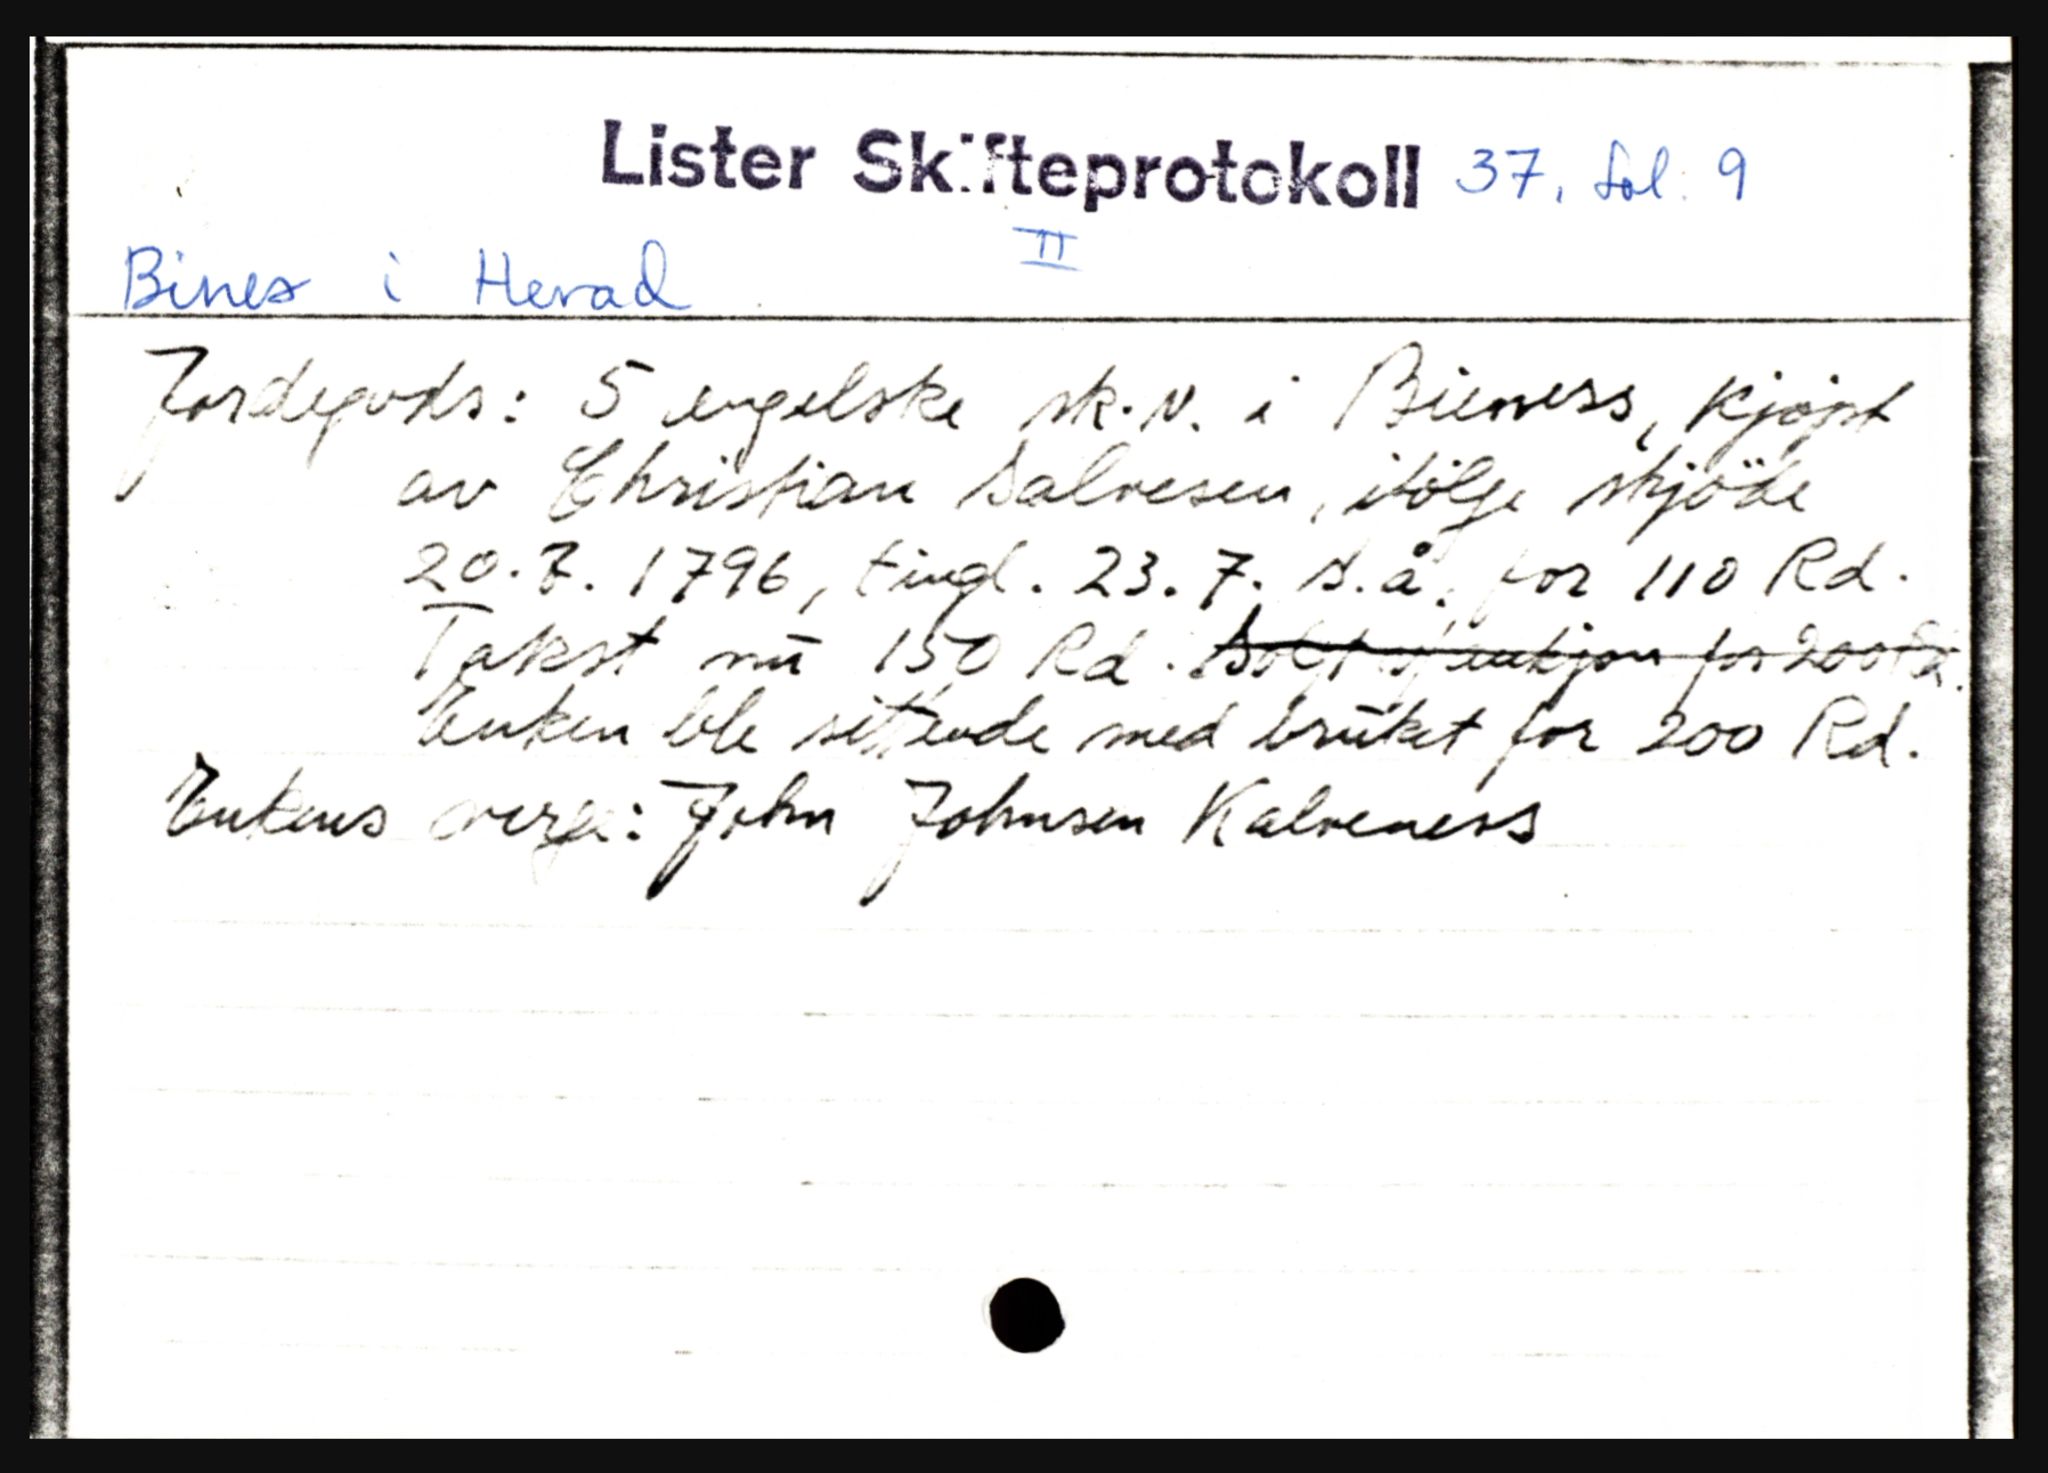 Lister Skifteprotokoll 37, fol. 9
II
Bines i Herad
Jordegods: 5 engelske sk. N. i Bieness, kjøpt
av Christian Salvesen, ifölge skjöde
20.7.1796, tingl. 23.7. s.å. for 110 Rd.
Takst nu 150 Rd. Solgt v/ auksjon for 200 Rd.
Enken ble sittende med bruket for 200 Rd.
Enkens verge: John Johnsen Kalveness